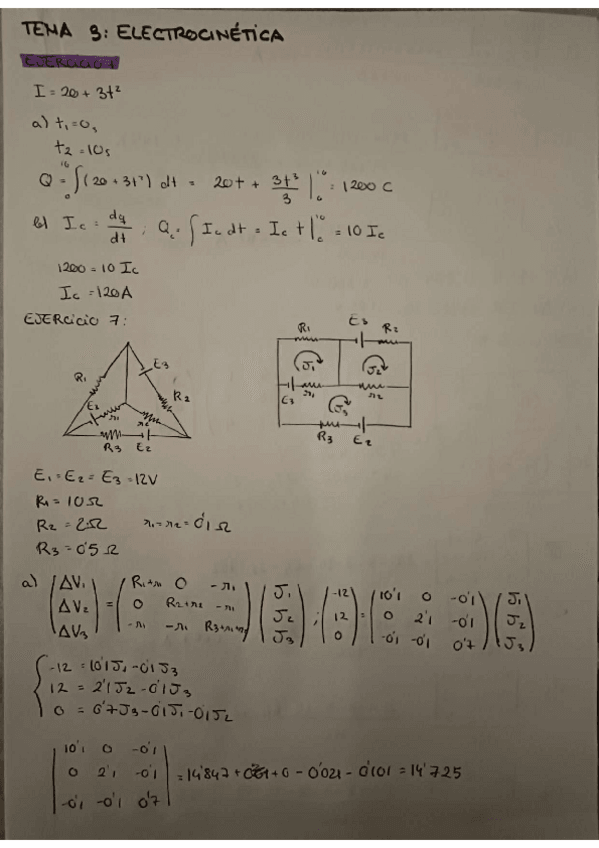 TEMA 9: ELECTROCINÉTICA
EJERCICIO 1
I = 20 + 3t²
a) t₁ = 0s
t₂ = 10s
Q = ∫₀¹⁰ (20 + 3t²) dt = 20t + 3t³/3 |₀¹⁰ = 1200 C
b) Ic = dq/dt ; Qc = ∫ Ic dt = Ic t |₀¹⁰ = 10 Ic
1200 = 10 Ic
Ic = 120A
EJERCICIO 7:
R₁ E₃ R₂
E₁ r₁ r₂
R₃ E₂
R₁ E₃ R₂
J₁ J₂
E₃ r₁ r₂
J₃
R₃ E₂
E₁ = E₂ = E₃ = 12V
R₁ = 10Ω
R₂ = 2Ω r₁ = r₂ = 0'1Ω
R₃ = 0'5Ω
a) (ΔV₁ ΔV₂ ΔV₃) = (R₁+r₁ 0 -r₁ 0 R₂+r₂ -r₁ -r₁ -r₁ R₃+r₁+r₂) (J₁ J₂ J₃) ; (-12 12 0) = (10'1 0 -0'1 0 2'1 -0'1 -0'1 -0'1 0'7) (J₁ J₂ J₃)
-12 = 10'1J₁ - 0'1J₃
12 = 2'1J₂ - 0'1J₃
0 = 0'7J₃ - 0'1J₁ - 0'1J₂
|10'1 0 -0'1
0 2'1 -0'1
-0'1 -0'1 0'7| = 14'847 + 0 - 0'021 - 0'101 = 14'725